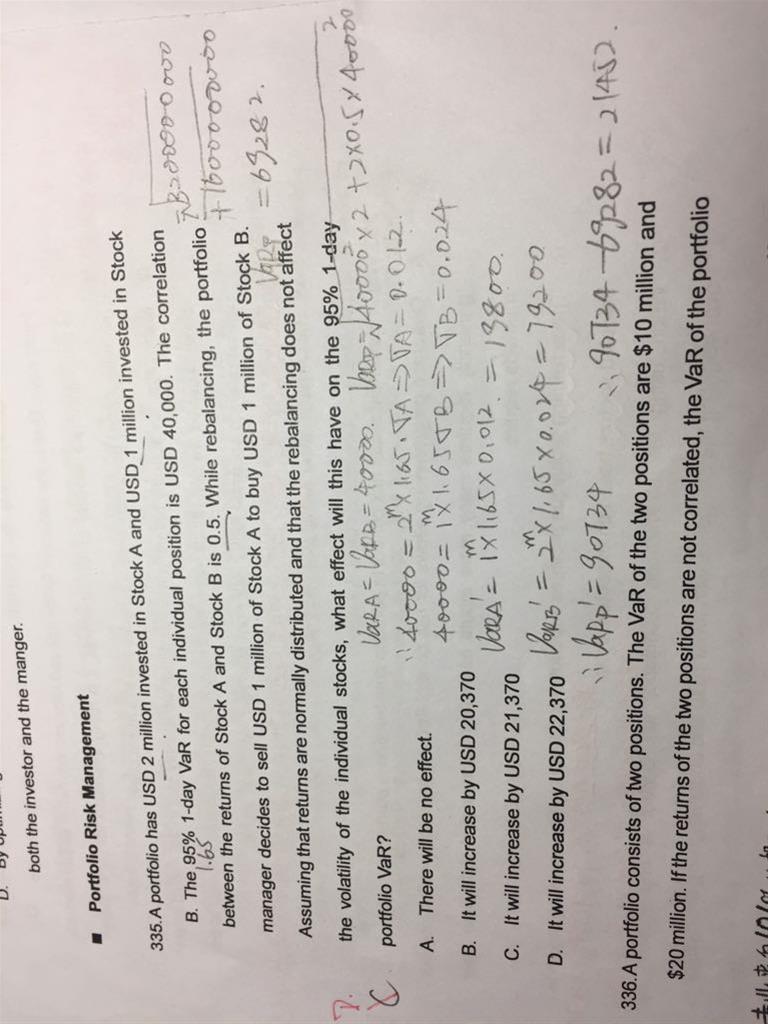 D. By
both the investor and the manger.
■ Portfolio Risk Management
335.A portfolio has USD 2 million invested in Stock A and USD 1 million invested in Stock
B. The 95% 1-day VaR for each individual position is USD 40,000. The correlation
1.65
between the returns of Stock A and Stock B is 0.5. While rebalancing, the portfolio
manager decides to sell USD 1 million of Stock A to buy USD 1 million of Stock B.
Assuming that returns are normally distributed and that the rebalancing does not affect
the volatility of the individual stocks, what effect will this have on the 95% 1-day
portfolio VaR?
=√3200000000
+1600000000
=69282.
VaRp
VaRA=VaRB=40000. VaRp=√40000²×2+2×0.5×40000²
∵40000=2m×1.65·σA⇒σA=0.012.
40000=1m×1.65σB⇒σB=0.024
VaRA'=1m×1.65×0.012.=19800.
VaRB'=2m×1.65×0.024=79200
∴VaRp'=90734 ∴90734-69282=21452.
D.
C
A. There will be no effect.
B. It will increase by USD 20,370
C. It will increase by USD 21,370
D. It will increase by USD 22,370
336.A portfolio consists of two positions. The VaR of the two positions are $10 million and
$20 million. If the returns of the two positions are not correlated, the VaR of the portfolio